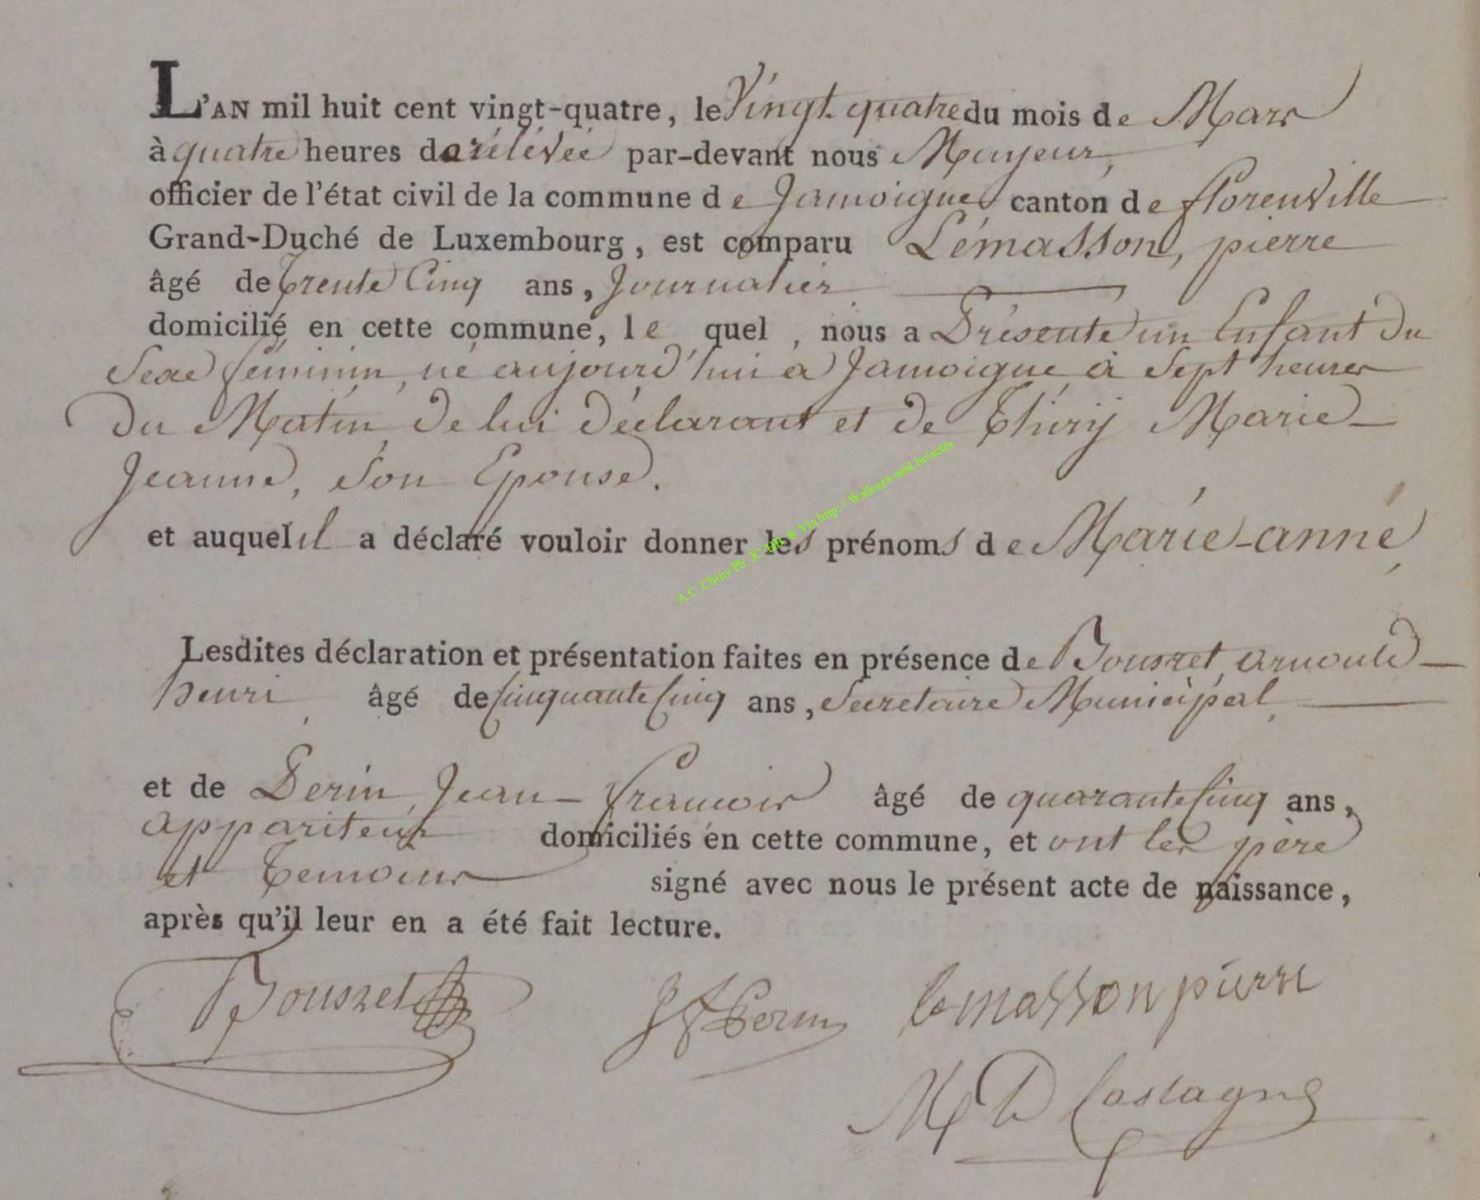 L'AN mil huit cent vingt-quatre, le Vingt quatre du mois de Mars
à quatre heures de rélévée par-devant nous Mayeur,
officier de l'état civil de la commune de Jamoigne canton de florenville
Grand-Duché de Luxembourg, est comparu Lémasson, pierre
âgé de trente Cinq ans, Journalier
domicilié en cette commune, le quel, nous a Présenté un Enfant du
Sexe féminin, né aujourd'hui à Jamoigne, à Sept heures
du Matin, de lui déclarant et de Thiry Marie
Jeanne, Son Epouse.
et auquel il a déclaré vouloir donner les prénoms de Marie-anne,
A.C. Chiny Ph. JC Via http://Wallonia-asbl.be/actes
Lesdites déclaration et présentation faites en présence de Bousret, arnould
henri, âgé de Cinquante Cinq ans, Secretaire Municipal,
et de Perin, Jean-françois âgé de quarante Cinq ans,
appariteur domiciliés en cette commune, et ont les père
et Temoins signé avec nous le présent acte de naissance,
après qu'il leur en a été fait lecture.
Bousret JF Perin lemasson pierre
M D Castagne